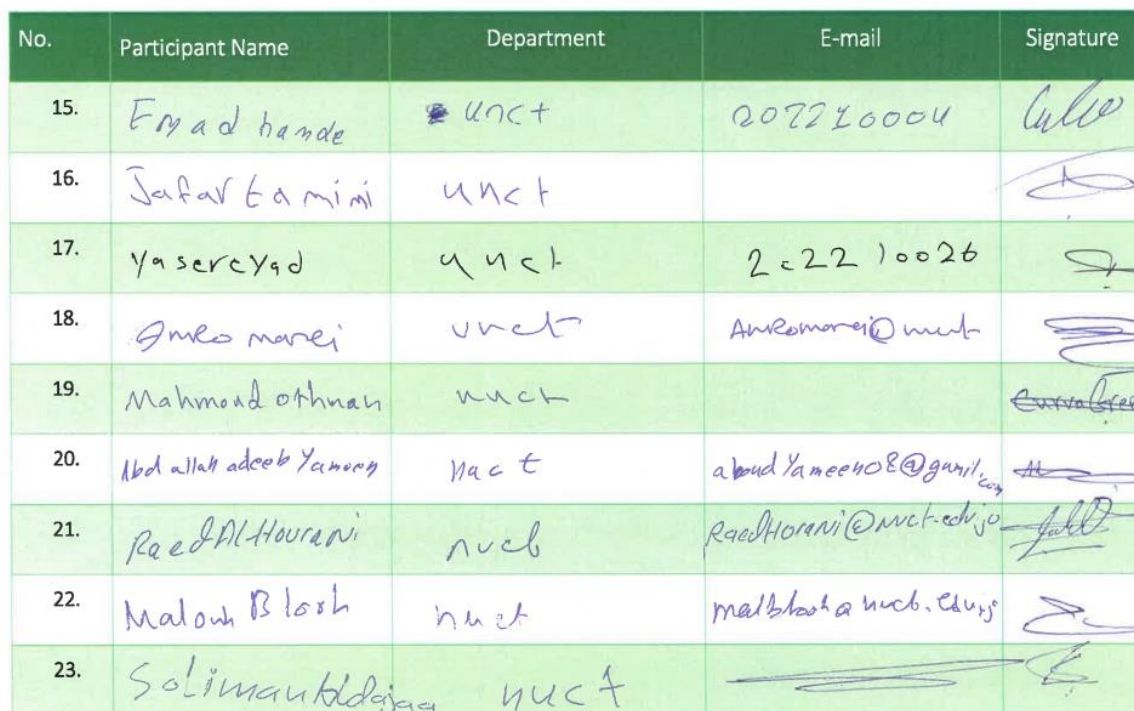 No. Participant Name Department E-mail Signature
15. Emad hande unct 202210004
16. Jafar tamimi unct
17. yasereyad unct 202210026
18. Amro marei unct Amromarei@nuct
19. Mahmoud othman nuct
20. Abdallah adeeb Yameen nuct aboudYameen08@gamil.com
21. Raed Al-Hourani nuct RaedHorani@nuct.edu.jo
22. Blosh nuct
23. Soliman nuct